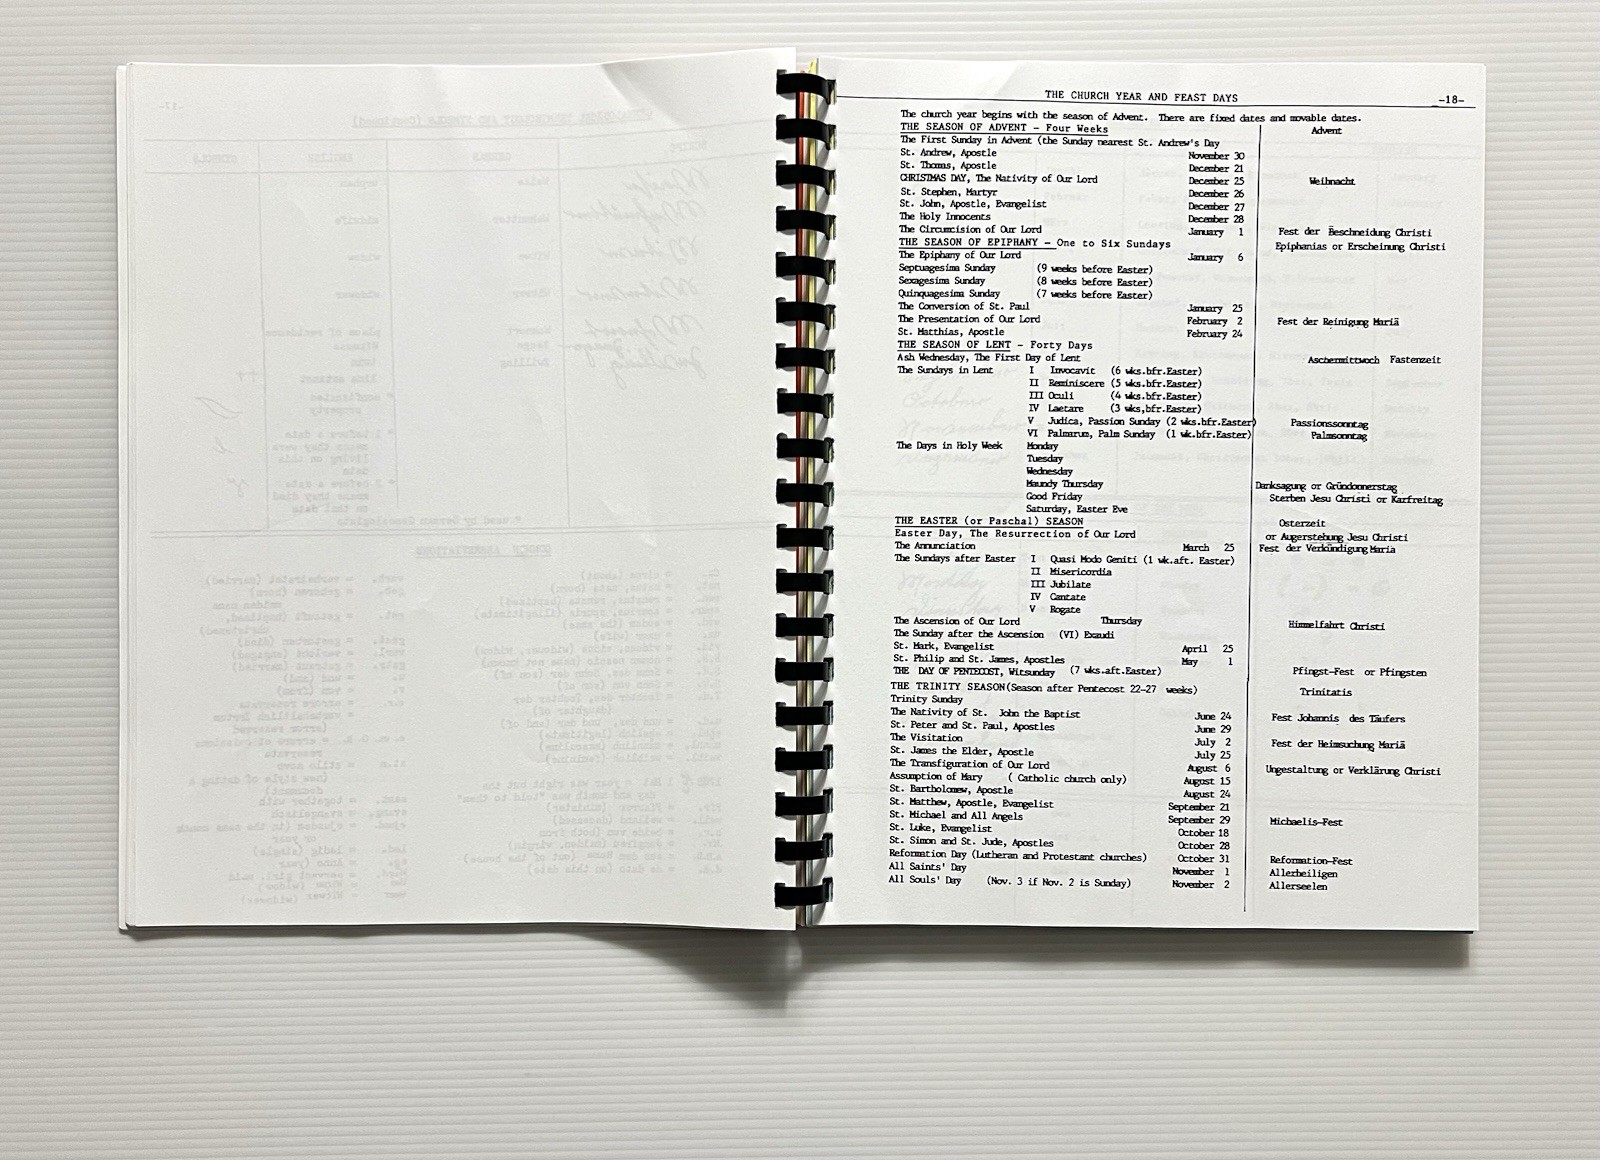 THE CHURCH YEAR AND FEAST DAYS -18-
The church year begins with the season of Advent. There are fixed dates and movable dates.
THE SEASON OF ADVENT - Four Weeks Advent
The First Sunday in Advent (the Sunday nearest St. Andrew's Day
St. Andrew, Apostle November 30
St. Thomas, Apostle December 21
CHRISTMAS DAY, The Nativity of Our Lord December 25 Weihnacht
St. Stephen, Martyr December 26
St. John, Apostle, Evangelist December 27
The Holy Innocents December 28
The Circumcision of Our Lord January 1 Fest der Beschneidung Christi
THE SEASON OF EPIPHANY - One to Six Sundays Epiphanias or Erscheinung Christi
The Epiphany of Our Lord January 6
Septuagesima Sunday (9 weeks before Easter)
Sexagesima Sunday (8 weeks before Easter)
Quinquagesima Sunday (7 weeks before Easter)
The Conversion of St. Paul January 25
The Presentation of Our Lord February 2 Fest der Reinigung Mariä
St. Matthias, Apostle February 24
THE SEASON OF LENT - Forty Days
Ash Wednesday, The First Day of Lent Aschermittwoch Fastenzeit
The Sundays in Lent I Invocavit (6 wks.bfr.Easter)
II Reminiscere (5 wks.bfr.Easter)
III Oculi (4 wks.bfr.Easter)
IV Laetare (3 wks,bfr.Easter)
V Judica, Passion Sunday (2 wks.bfr.Easter) Passionssonntag
VI Palmarum, Palm Sunday (1 wk.bfr.Easter) Palmsonntag
The Days in Holy Week Monday
Tuesday
Wednesday
Maundy Thursday Danksagung or Gründonnerstag
Good Friday Sterben Jesu Christi or Karfreitag
Saturday, Easter Eve
THE EASTER (or Paschal) SEASON Osterzeit
Easter Day, The Resurrection of Our Lord or Augerstehung Jesu Christi
The Annunciation March 25 Fest der Verkündigung Maria
The Sundays after Easter I Quasi Modo Geniti (1 wk.aft. Easter)
II Misericordia
III Jubilate
IV Cantate
V Rogate
The Ascension of Our Lord Thursday Himmelfahrt Christi
The Sunday after the Ascension (VI) Exaudi
St. Mark, Evangelist April 25
St. Philip and St. James, Apostles May 1
THE DAY OF PENTECOST, Witsunday (7 wks.aft.Easter) Pfingst-Fest or Pfingsten
THE TRINITY SEASON(Season after Pentecost 22-27 weeks) Trinitatis
Trinity Sunday
The Nativity of St. John the Baptist June 24 Fest Johannis des Täufers
St. Peter and St. Paul, Apostles June 29
The Visitation July 2 Fest der Heimsuchung Mariä
St. James the Elder, Apostle July 25
The Transfiguration of Our Lord August 6 Ungestaltung or Verklärung Christi
Assumption of Mary ( Catholic church only) August 15
St. Bartholomew, Apostle August 24
St. Matthew, Apostle, Evangelist September 21
St. Michael and All Angels September 29 Michaelis-Fest
St. Luke, Evangelist October 18
St. Simon and St. Jude, Apostles October 28
Reformation Day (Lutheran and Protestant churches) October 31 Reformation-Fest
All Saints' Day November 1 Allerheiligen
All Souls' Day (Nov. 3 if Nov. 2 is Sunday) November 2 Allerseelen